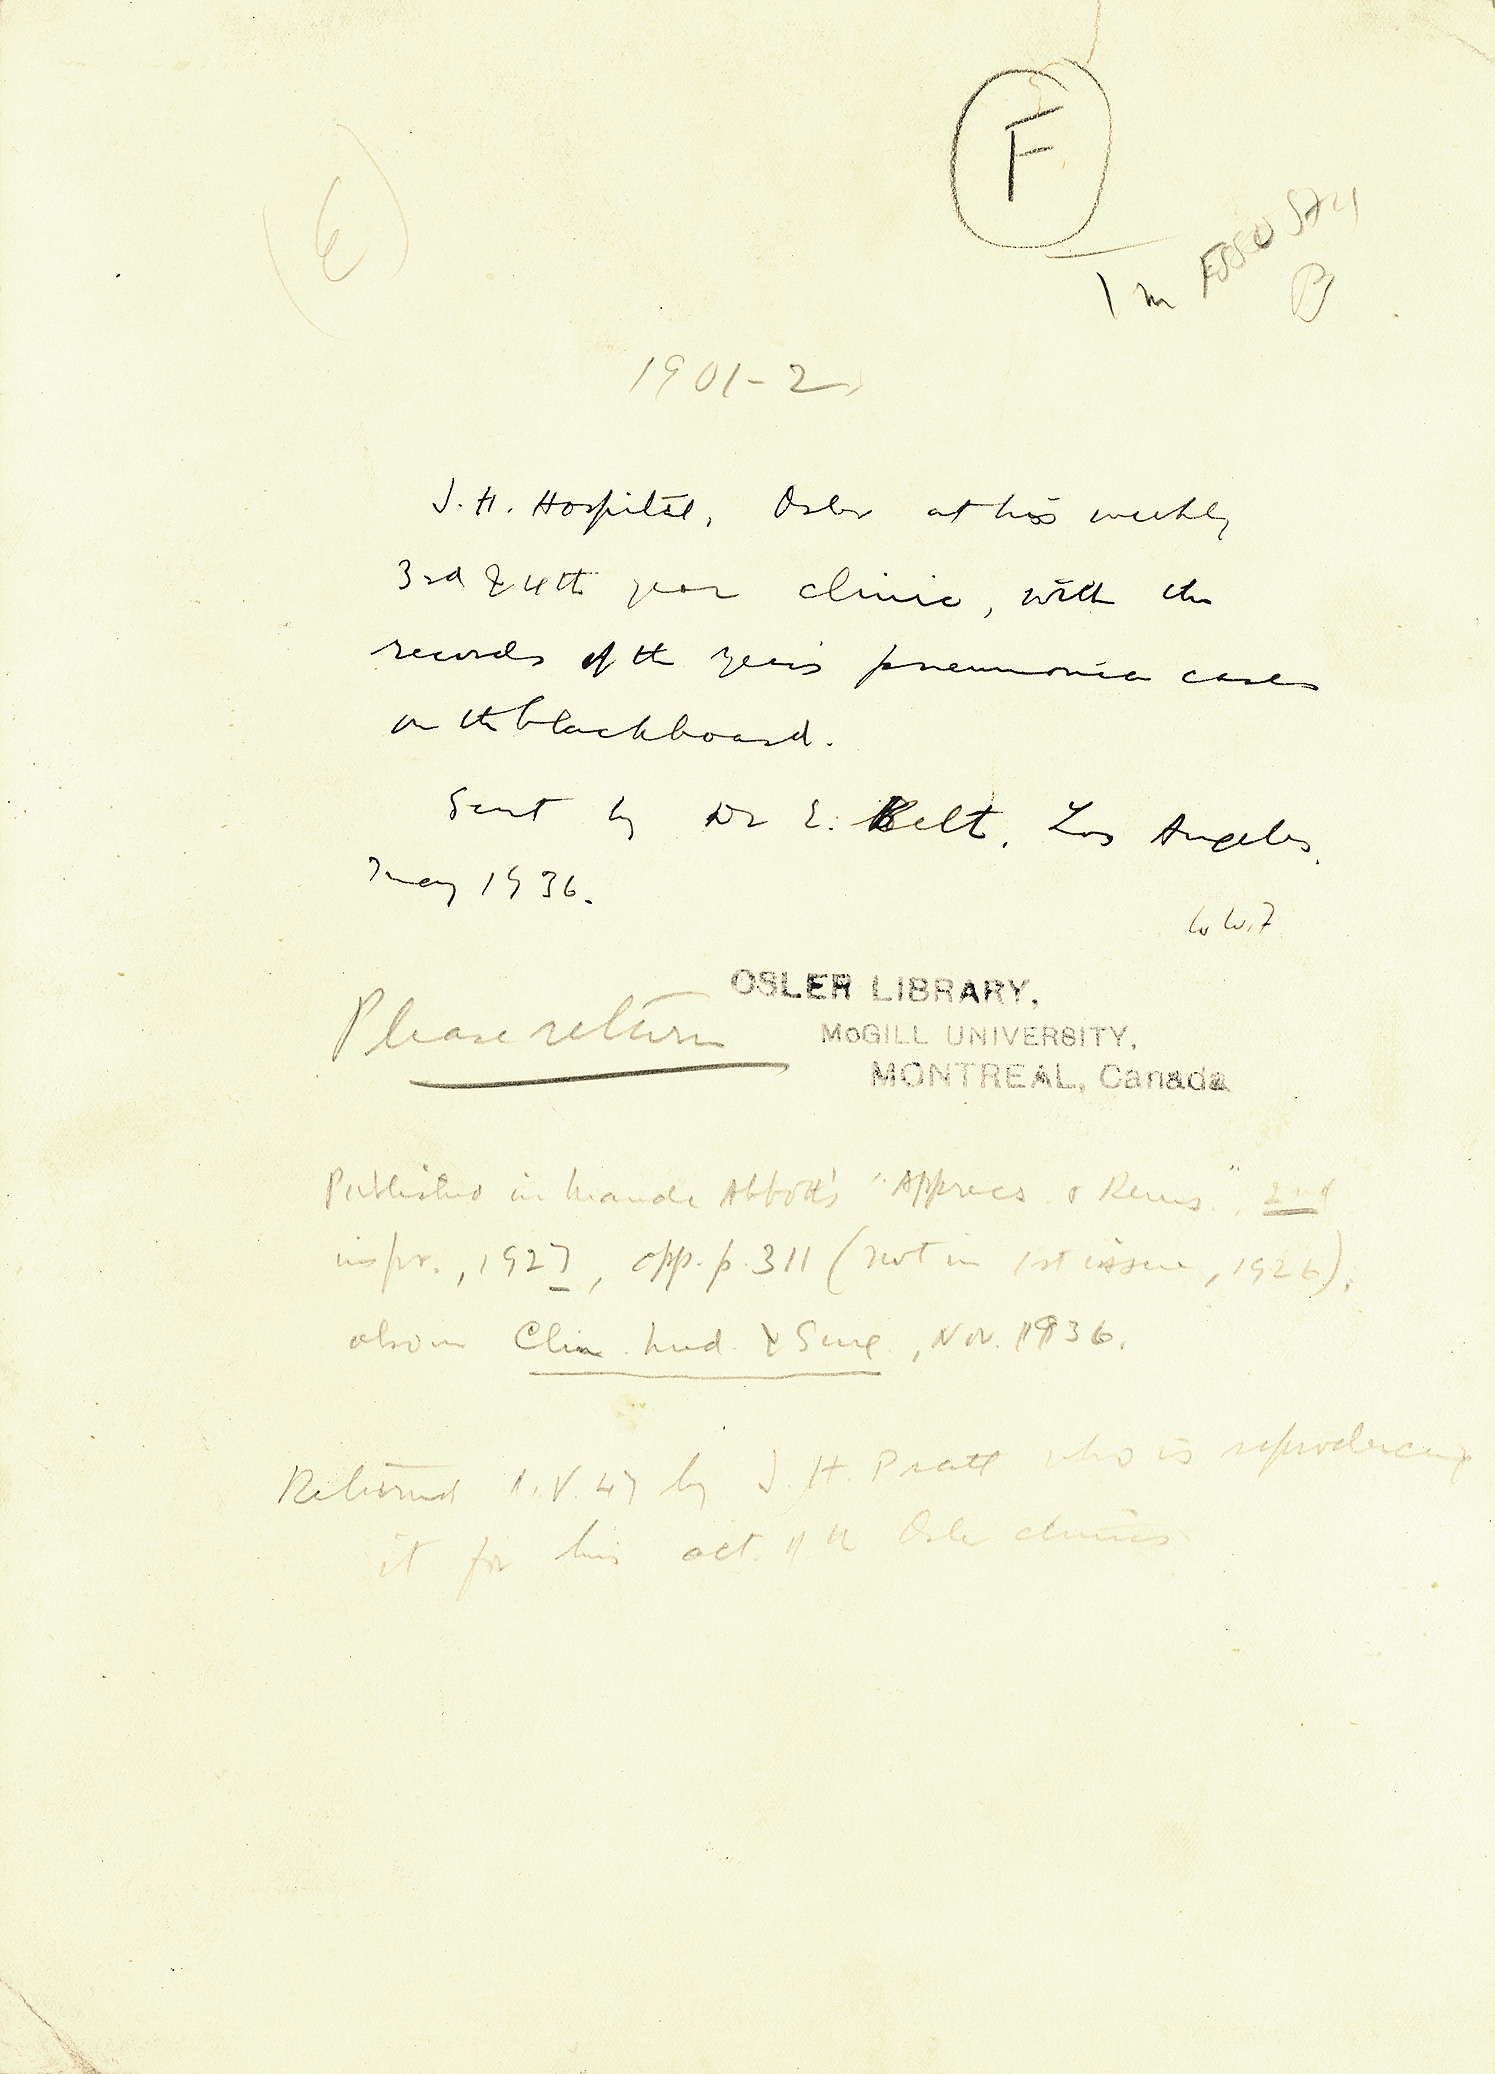 F
1901-2
J. H. Hospital, Osler at his weekly
3rd & 4th year clinic, with the
records of the year's pneumonia cases
on the blackboard.
Sent by Dr E. Belt, Los Angeles,
May 1936.
W.W.F
Please return
OSLER LIBRARY,
McGILL UNIVERSITY,
MONTREAL, Canada
Published in Maude Abbott's "Apprecs & Rems", 2nd
impr., 1927, opp. p. 311 (not in 1st issue, 1926).
also in Clin. Med. & Surg, Nov. 1936.
Returned 1.V.47 by J. H. Pratt who is reproducing
it for his act. of the Osler clinics